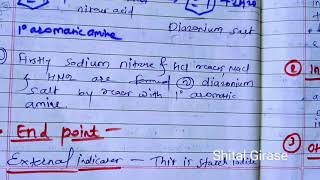 nitrous acid
Diazonium Salt
1° aromatic amine
Firstly sodium nitrate & Hcl reacs Nacl
& HNO2 are formed ② diazonium
salt by reacs with 1° aromatic
amine
End point -
External indicator - This is starch iodide
② In
③ Ot
Shital Girase